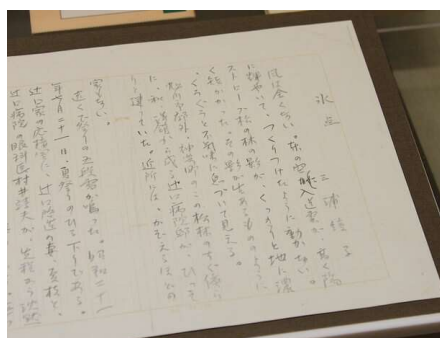 氷点
三浦綾子
風は全くない。東の空に入道雲が、高く陽
に輝やいて、つくりつけたように動かない。
ストローブ松の林の影が、くっきりと地に濃
く短かかった。その影が生あるもののように、
くろぐろと不気味に息づいて見える。
旭川市郊外、神楽町のこの松林のすぐ傍ら
に、和、洋館から成る辻口病院長邸が、ひっそ
りと建っていた。近所には、かぞえるほどの
家もない。
遠くで祭りの五段雷が鳴った。昭和二十一
年七月二十一日、夏祭りのひる下りである。
辻口家の応接室に、辻口啓造の妻、夏枝と、
辻口病院の眼科医村井靖夫が、先程から沈黙